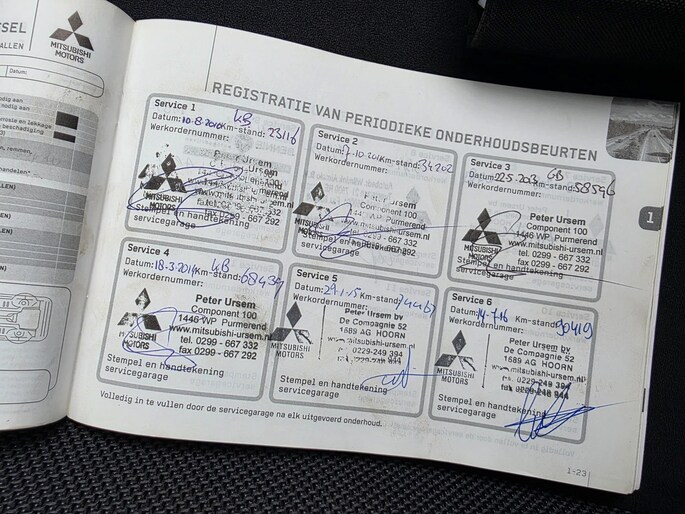 ESEL
ALLEN
MITSUBISHI
MOTORS
Datum:
REGISTRATIE VAN PERIODIEKE ONDERHOUDSBEURTEN
Service 1
KB
Datum: 10-8-2010 Km-stand: 23116
Werkordernummer:
Peter Ursem
Component 100
1446 WP Purmerend
fax 0299 - 667 292
MITSUBISHI
MOTORS
Stempel en handtekening
servicegarage
Service 2
Datum: Km-stand: 34202
Werkordernummer:
Peter Ursem
Component 100
1446 WP Purmerend
www.mitsubishi-ursem.nl
tel. 0299 - 667 332
MOTORS
Stempel en handtekening
servicegarage
Service 3
KB
Datum: 22.5.2013 Km-stand: 58546
Werkordernummer:
Peter Ursem
Component 100
1446 WP Purmerend
www.mitsubishi-ursem.nl
tel. 0299 - 667 332
fax 0299 - 667 292
MITSUBISHI
MOTORS
Stempel en handtekening
servicegarage
1
Service 4
KB
Datum: 18-3-2014 Km-stand: 68439
Werkordernummer:
Peter Ursem
Component 100
1446 WP Purmerend
www.mitsubishi-ursem.nl
tel. 0299 - 667 332
fax 0299 - 667 292
MITSUBISHI
MOTORS
Stempel en handtekening
servicegarage
Service 5
Datum: 29-1-15 Km-stand:
Werkordernummer:
Peter Ursem bv
De Compagnie 52
1689 AG HOORN
www.mitsubishi-ursem.nl
tel. 0229-249 394
MITSUBISHI
MOTORS
Stempel en handtekening
servicegarage
Service 6
Datum: 14-7-16 Km-stand: 90419
Werkordernummer:
Peter Ursem bv
De Compagnie 52
1689 AG HOORN
www.mitsubishi-ursem.nl
tel. 0229-249 394
fax 0229-248 944
MITSUBISHI
MOTORS
Stempel en handtekening
servicegarage
Volledig in te vullen door de servicegarage na elk uitgevoerd onderhoud.
1-23